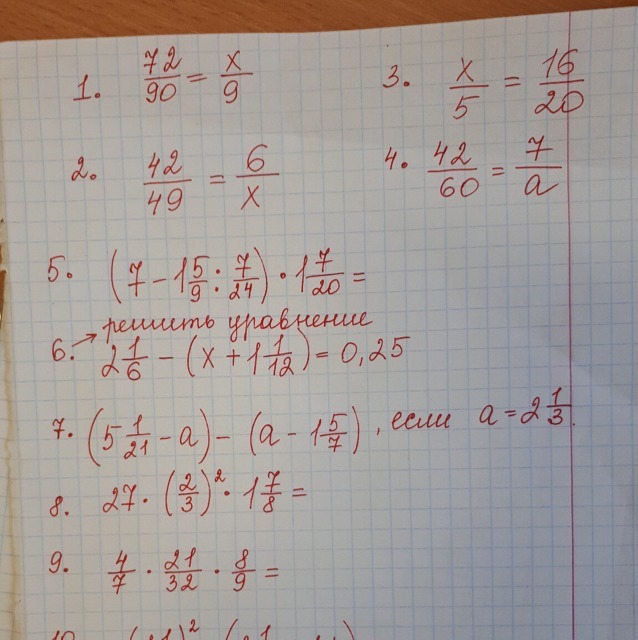 1. 72/90 = x/9
3. x/5 = 16/20
2. 42/49 = 6/x
4. 42/60 = 7/a
5. (7 - 1 5/9 : 7/24) · 1 7/20 =
→ решить уравнение
6. 2 1/6 - (x + 1 1/12) = 0,25
7. (5 1/21 - a) - (a - 1 5/7), если a = 2 1/3.
8. 27 · (2/3)² · 1 7/8 =
9. 4/7 · 21/32 · 8/9 =